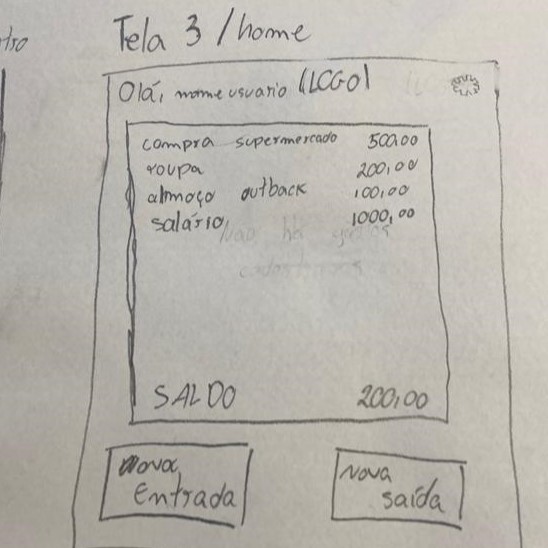 tro
Tela 3 /home
Olá, nome usuario (LOGO)
compra supermercado 500,00
roupa 200,00
almoço outback 100,00
salário 1000,00
Não há gastos
cadastrados
SALDO 200,00
Nova
Entrada
Nova
saída